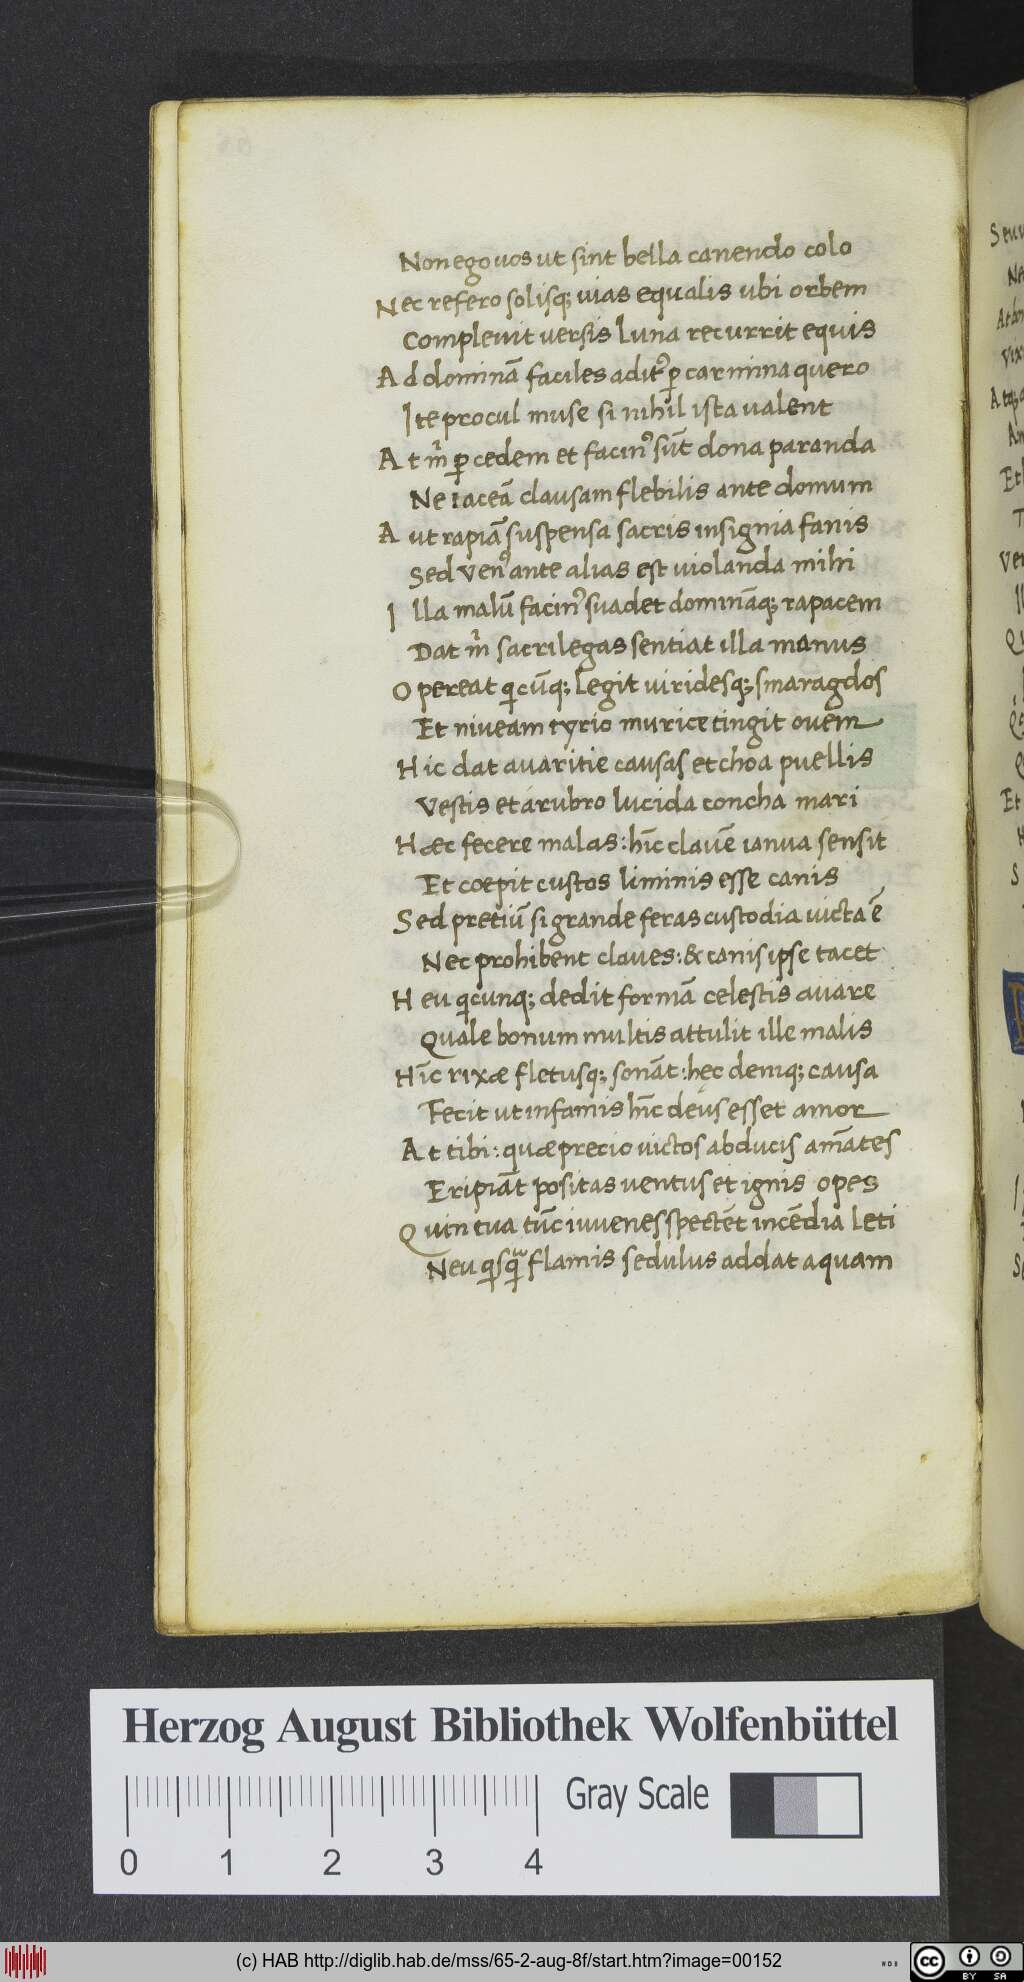 Non ego uos ut sint bella canendo colo
Nec refero solisq; uias equalis ubi orbem
Compleuit uersis luna recurrit equis
Ad dominã faciles aditꝰ ꝑ carmina quero
Ite procul muse si nihil ista ualent
At m̃ ꝑ cedem et facinꝰ sũt dona paranda
Ne iaceã clausam flebilis ante domum
Aut rapiã suspensa sacris insignia fanis
Sed Venꝰ ante alias est uiolanda mihi
Illa malũ facinꝰ suadet dominãq; rapacem
Dat m̃ sacrilegas sentiat illa manus
O pereat qicũq; legit uiridesq; smaragdos
Et niueam tyrio murice tingit ouem
Hic dat auaritie causas et choa puellis
Vestis et á rubro lucida concha mari
Hæc fecere malas: hĩc clauẽ ianua sensit
Et coepit custos liminis esse canis
Sed pretiũ si grande feras custodia uicta ẽ
Nec prohibent claues: & canis ipse tacet
Heu qicunq; dedit formã celestis auare
Quale bonum multis attulit ille malis
Hĩc rixæ fletusq; sonãt: hęc deniq; causa
Fecit ut infamis hĩc deus esset amor
At tibi: quæ precio uictos abducis amãtes
Eripiãt positas uentus et ignis opes
Quin tua tũc iuuenes spectẽt incẽdia leti
Neu qisqͣ flamis sedulus addat aquam
Herzog August Bibliothek Wolfenbüttel
0 1 2 3 4
Gray Scale
(c) HAB http://diglib.hab.de/mss/65-2-aug-8f/start.htm?image=00152
cc BY SA